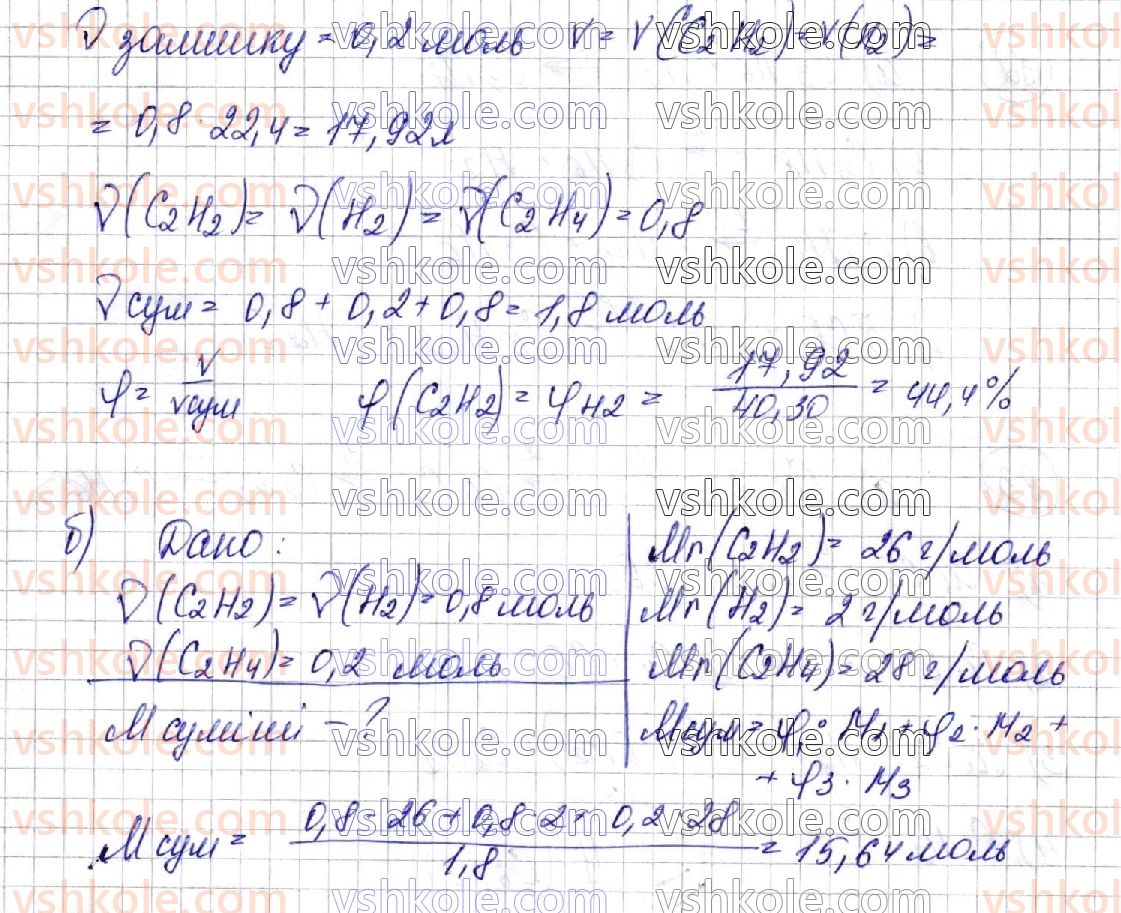 ν залишку = 0,2 моль V = V(C₂H₂) = V(H₂) =
= 0,8 · 22,4 = 17,92 л
ν(C₂H₂) = ν(H₂) = ν(C₂H₄) = 0,8
ν сум = 0,8 + 0,2 + 0,8 = 1,8 моль
φ = V / Vсум φ(C₂H₂) = φ H₂ = 17,92 / 40,30 = 44,4%
б) Дано:
ν(C₂H₂) = ν(H₂) = 0,8 моль
ν(C₂H₄) = 0,2 моль
M суміші - ?
Mr(C₂H₂) = 26 г/моль
Mr(H₂) = 2 г/моль
Mr(C₂H₄) = 28 г/моль
Mсум = φ₁ · M₁ + φ₂ · M₂ +
+ φ₃ · M₃
M сум = 0,8 · 26 + 0,8 · 2 + 0,2 · 28 / 1,8 = 15,64 моль
vshkole.com